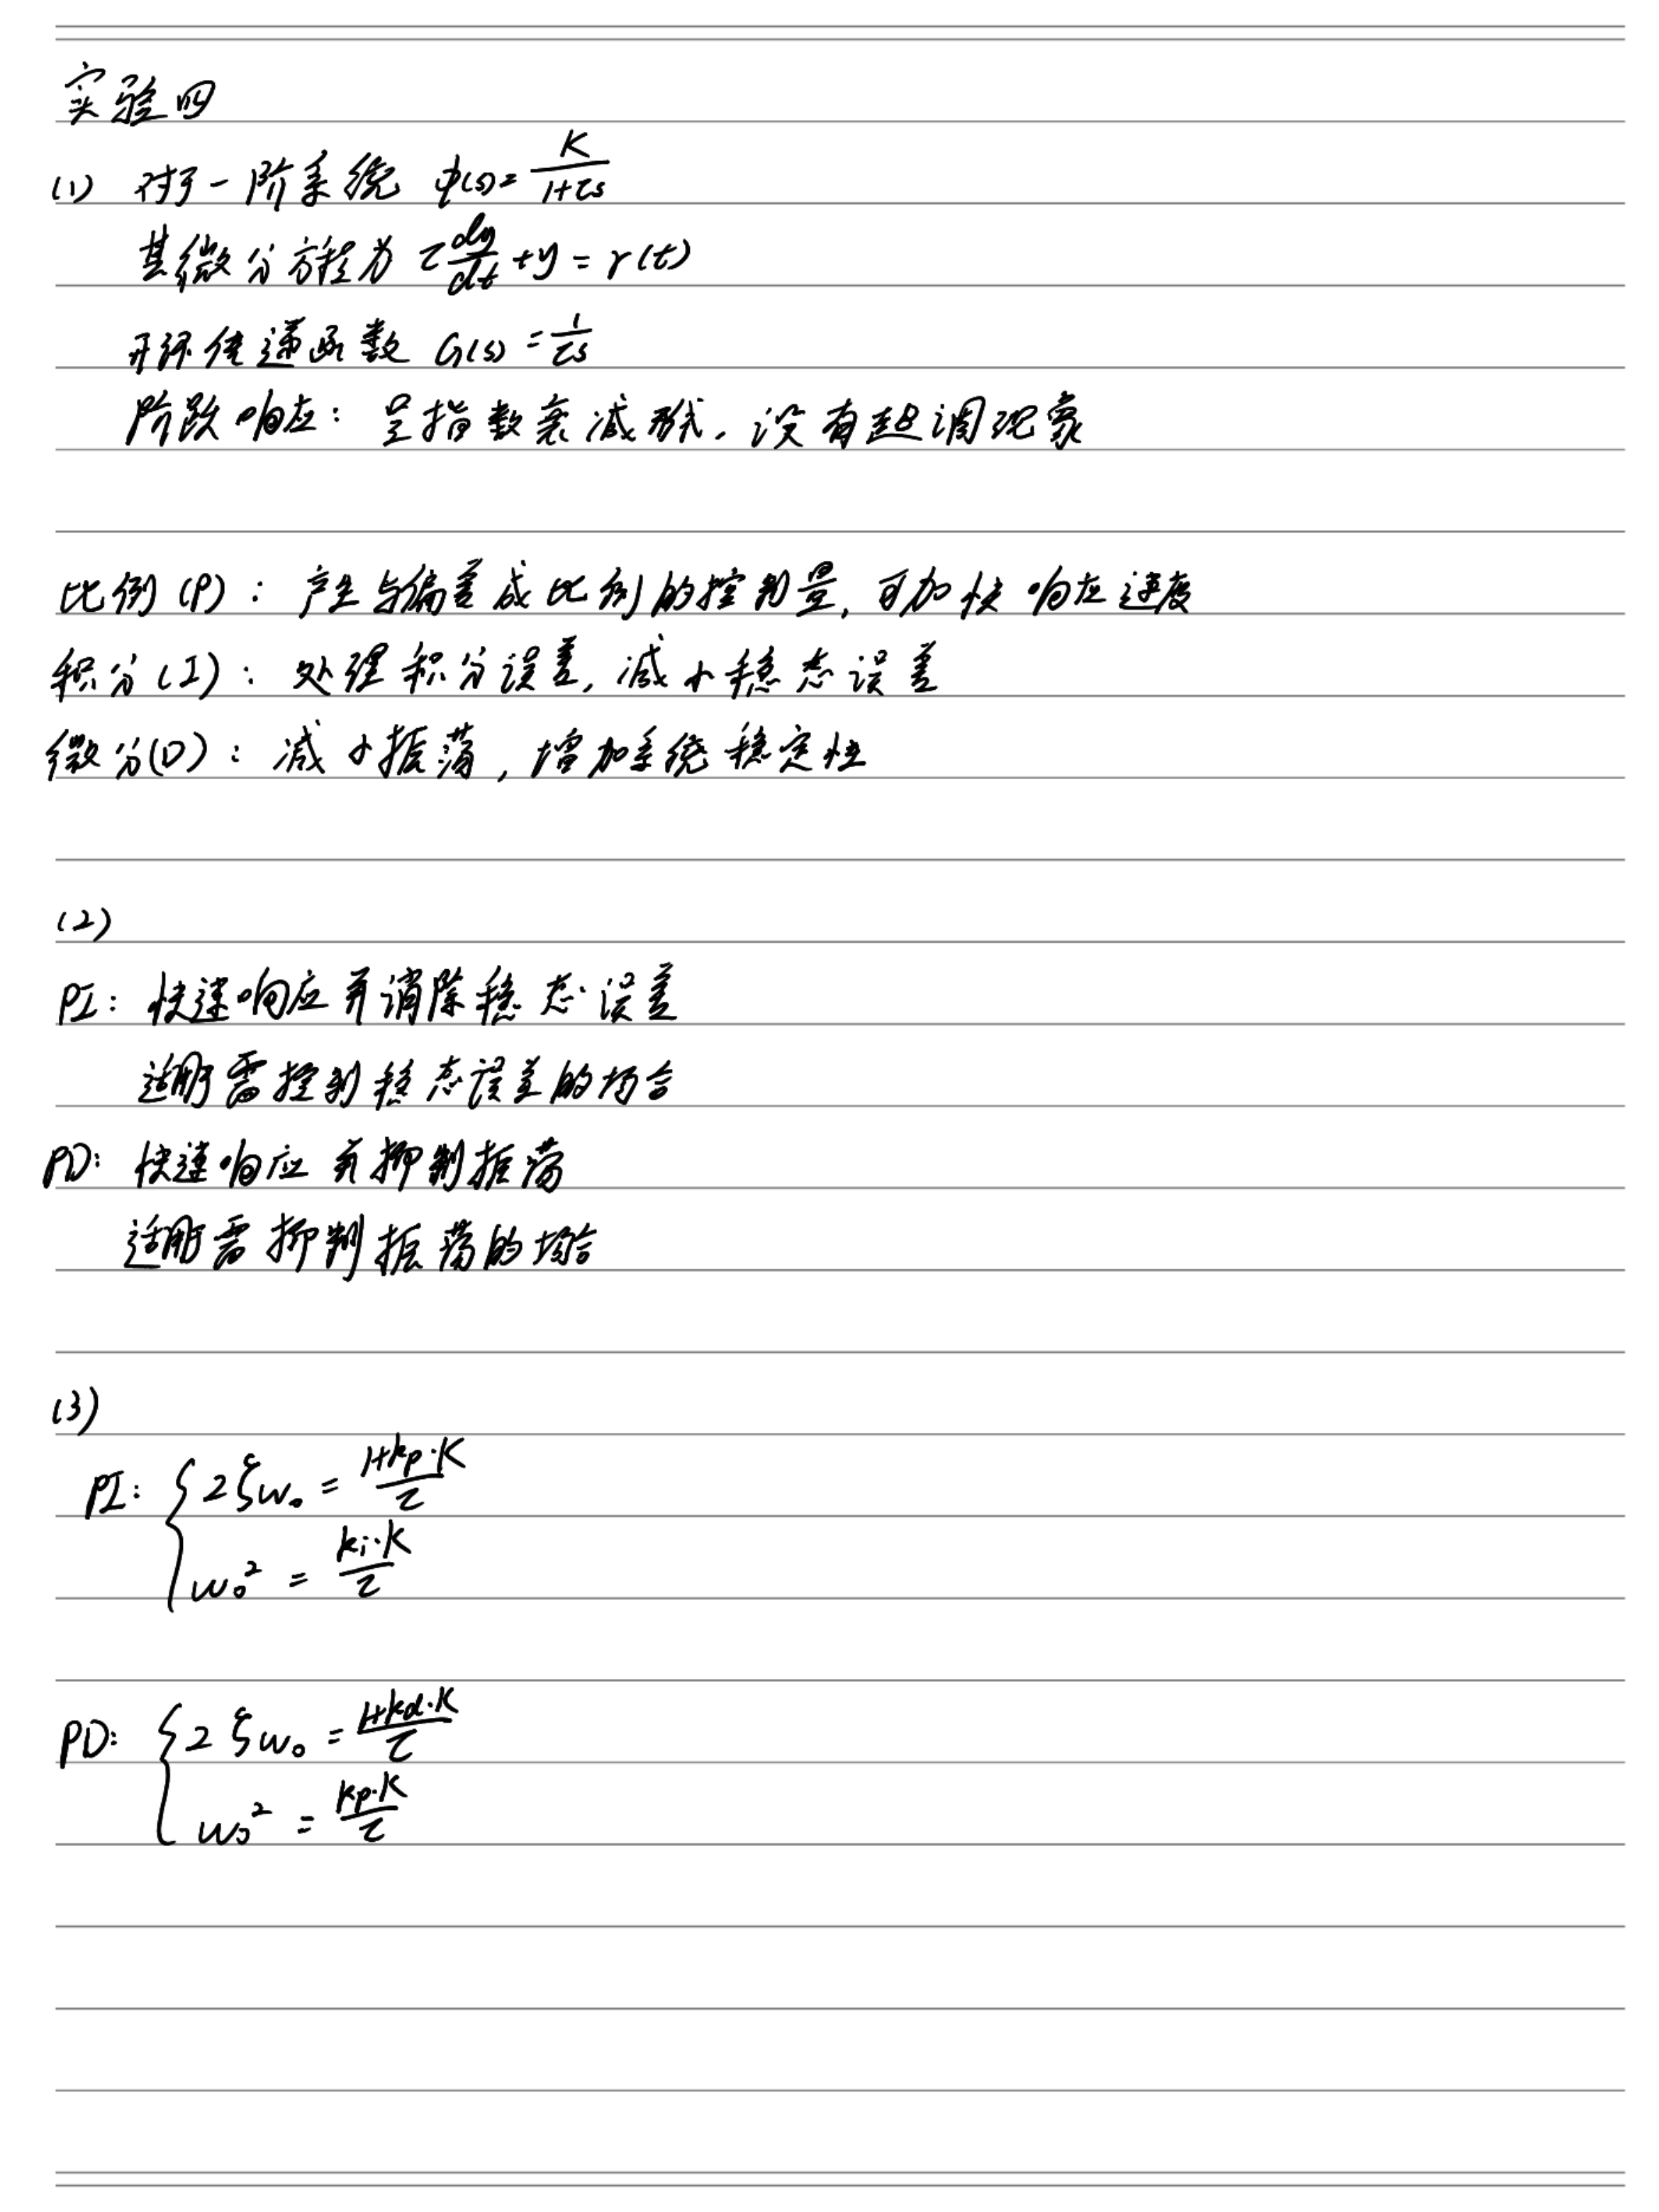 实验四
(1) 对于一阶系统 φ(s)=K/(1+τs)
其微分方程为 τ dy/dt + y = r(t)
开环传递函数 G(s) = 1/τs
阶跃响应：呈指数衰减形式，没有超调现象
比例(P)：产生与偏差成比例的控制量，可加快响应速度
积分(I)：处理积分误差，减小稳态误差
微分(D)：减小振荡，增加系统稳定性
(2)
PI：快速响应并消除稳态误差
适用于需控制稳态误差的场合
PD：快速响应并抑制振荡
适用于需抑制振荡的场合
(3)
PI: { 2ζω₀ = (1+kp·K)/τ
ω₀² = ki·K/τ
PD: { 2ζω₀ = (1+kd·K)/τ
ω₀² = kp·K/τ